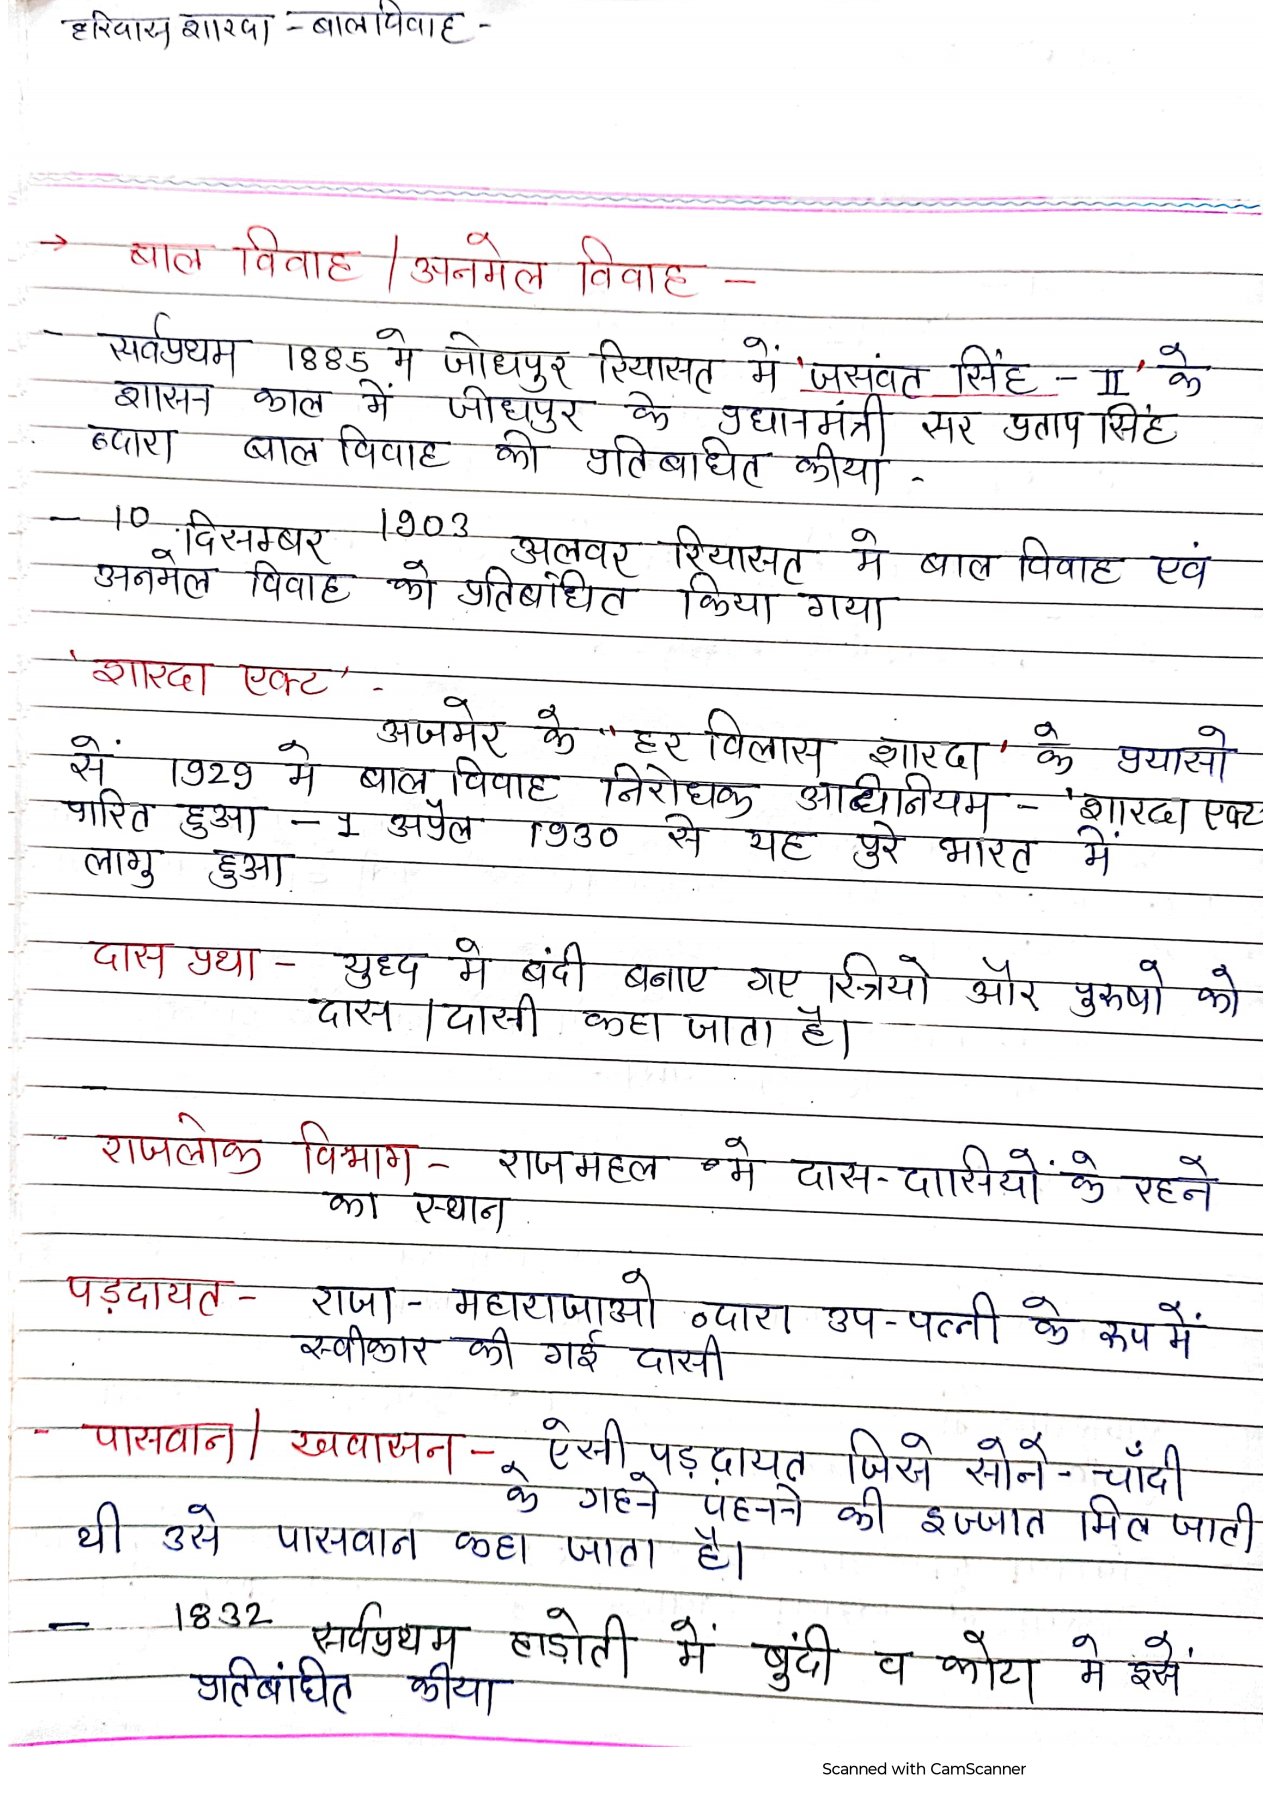 हरिवास शारदा = बालविवाह -
→ बाल विवाह / अनमेल विवाह -
- सर्वप्रथम 1885 मे जोधपुर रियासत में 'जसंवत सिंह - II' के
शासन काल में जोधपुर के प्रधानमंत्री सर प्रताप सिंह
द्वारा बाल विवाह को प्रतिबाधित कीया -
- 10 दिसम्बर 1903 अलवर रियासत मे बाल विवाह एवं
अनमेल विवाह को प्रतिबंधित किया गया
'शारदा एक्ट' -
अजमेर के "हर विलास शारदा' के प्रयासो
सें 1929 मे बाल विवाह निरोधक अधिनियम - 'शारदा एक्ट
पारित हुआ - 1 अप्रैल 1930 से यह पुरे भारत में
लागु हुआ
दास प्रथा - युध्द मे बंदी बनाए गए स्त्रियो और पुरुषो को
दास / दासी कहा जाता है।
- राजलोक विभाग - राजमहल मे दास-दासियों के रहने
का स्थान
पड़दायत - राजा - महाराजाओ द्वारा उप-पत्नी के रूप में
स्वीकार की गई दासी
- पासवान / खवासन - ऐसी पड़दायत जिसे सोने - चाँदी
के गहने पंहनने की इज्जात मिल जाती
थी उसे पासवान कहा जाता है।
- 1832 सर्वप्रथम हाड़ोती में बुंदी व कोटा मे इसें
प्रतिबंधित कीया
Scanned with CamScanner